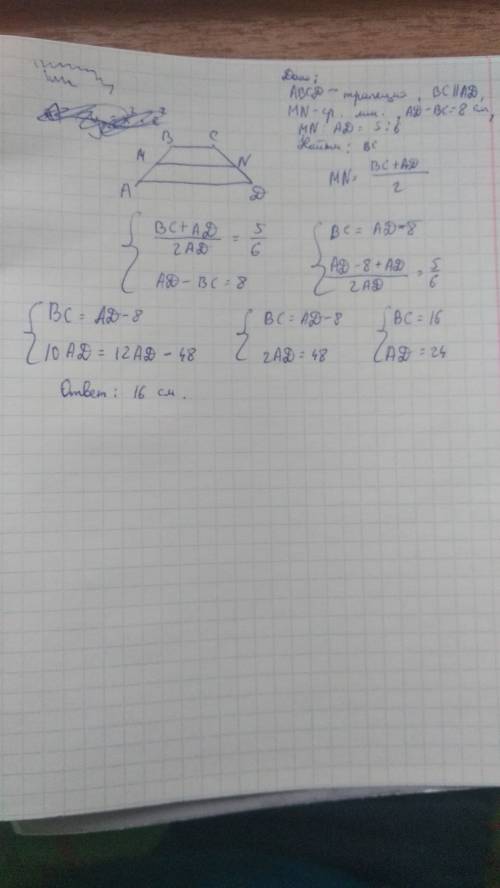 Дано:
ABCD - трапеция, BC||AD,
MN - ср. лин., AD-BC=8 см,
MN : AD = 5 : 6
Найти: BC
MN = (BC+AD)/2
B C
M N
A D
(BC+AD)/2AD = 5/6
AD - BC = 8
BC = AD-8
(AD-8+AD)/2AD = 5/6
BC = AD-8
10AD = 12AD - 48
BC = AD-8
2AD = 48
BC = 16
AD = 24
Ответ: 16 см.